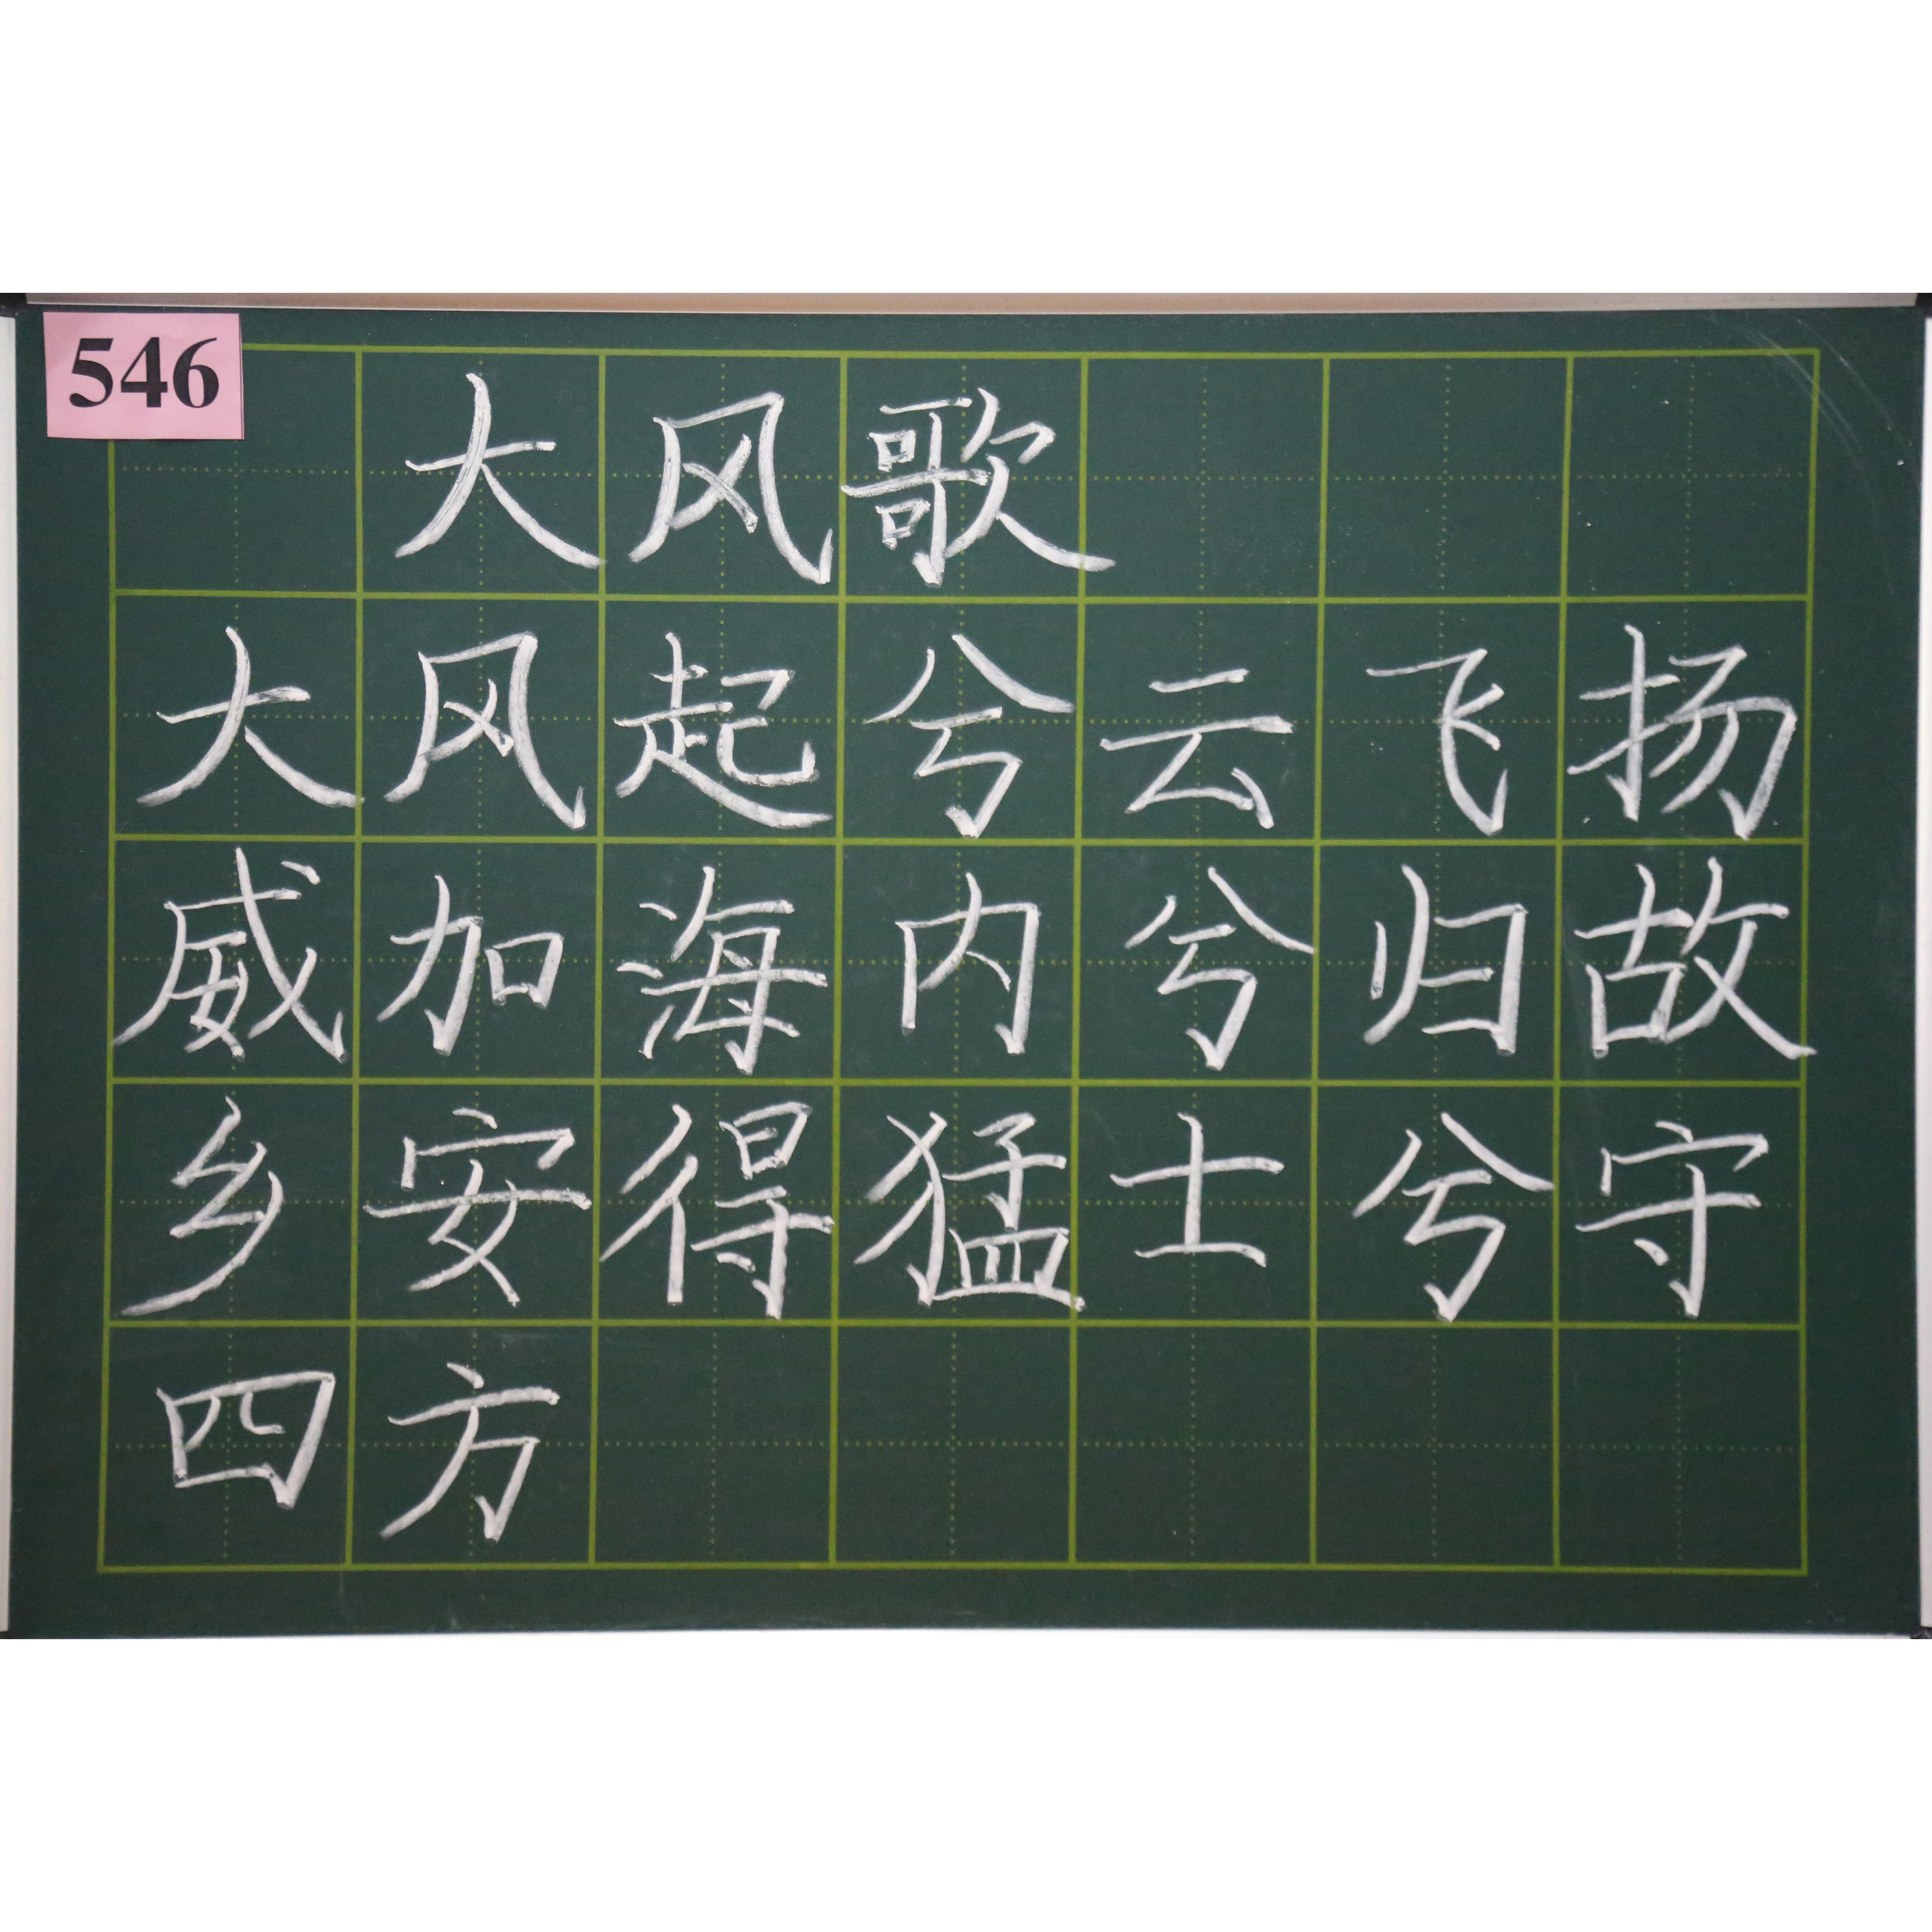 546
大风歌
大风起兮云飞扬
威加海内兮归故
乡安得猛士兮守
四方